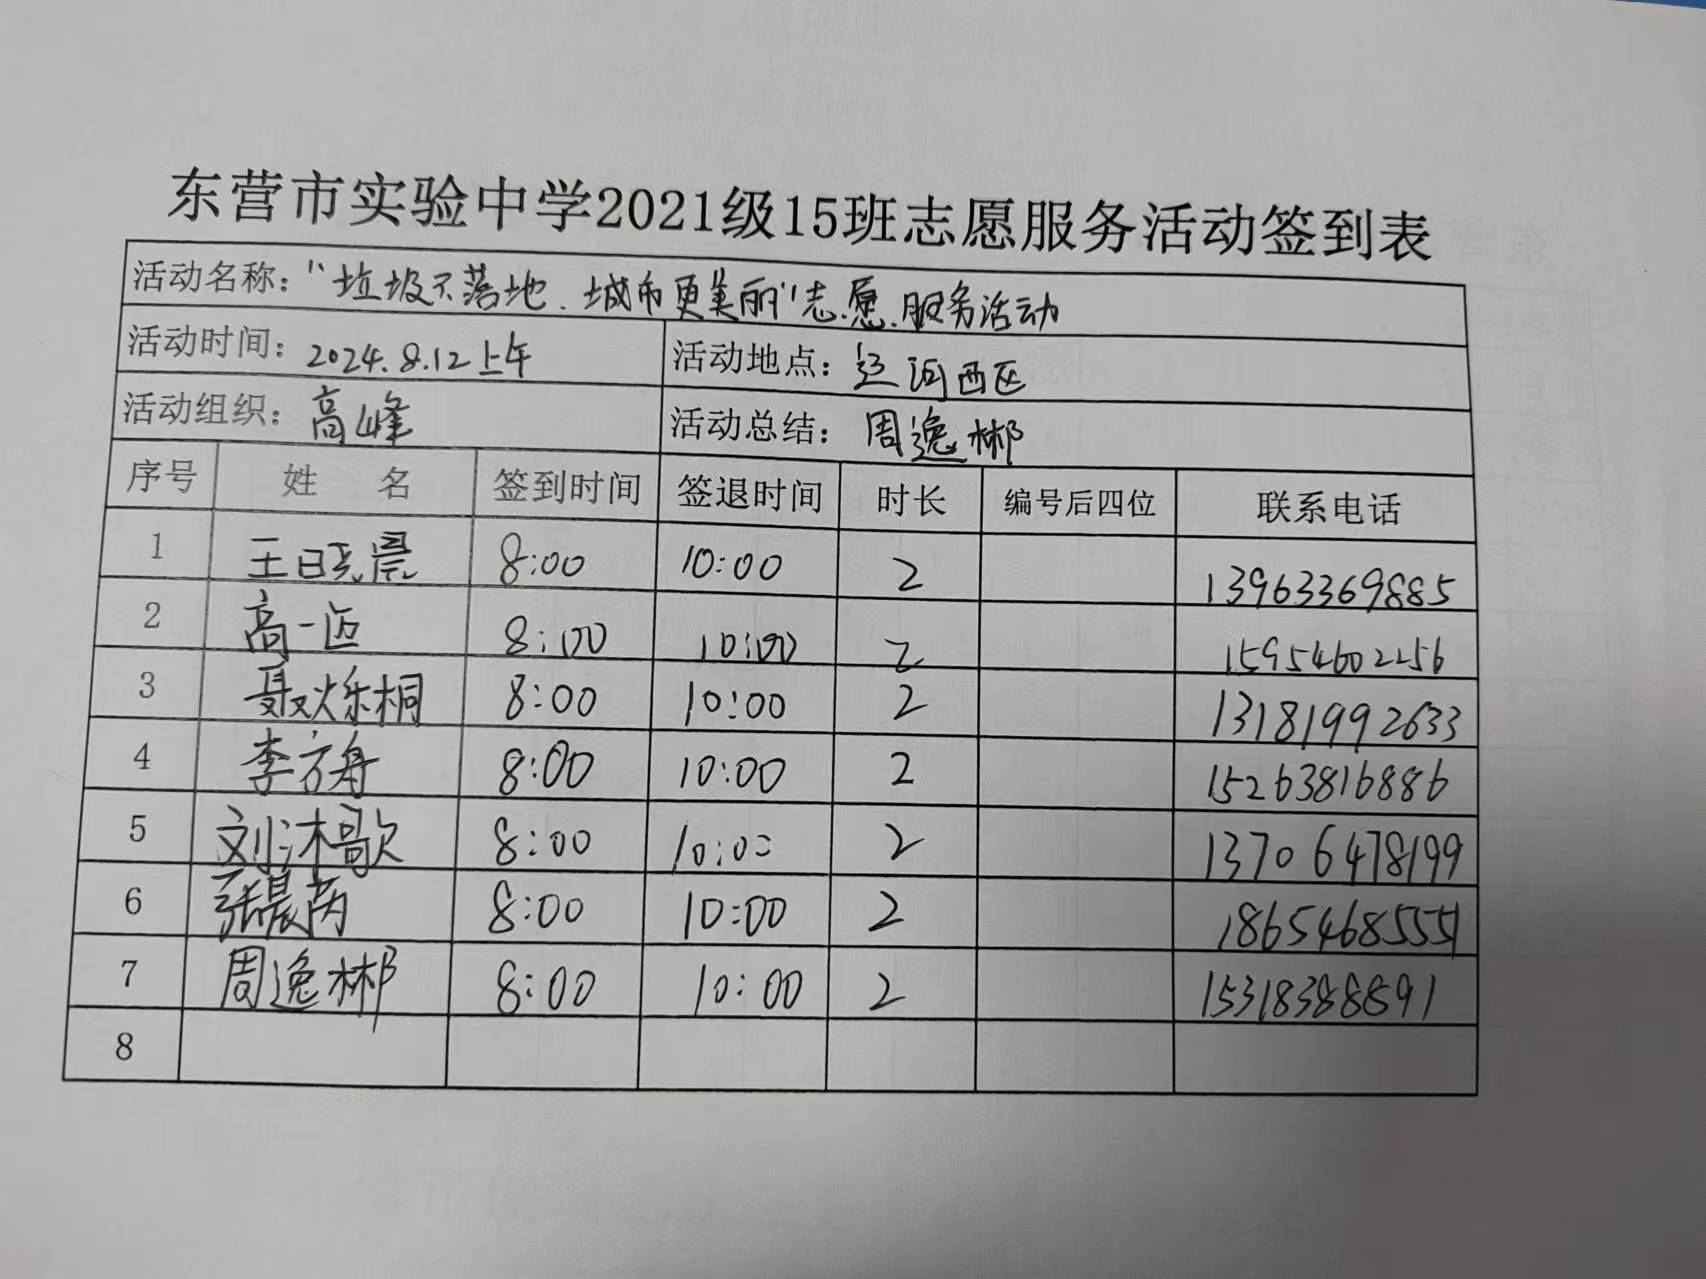 东营市实验中学2021级15班志愿服务活动签到表
活动名称："垃圾不落地.城市更美丽"志愿服务活动
活动时间：2024.8.12上午 活动地点：辽河西区
活动组织：高峰 活动总结：周逸彬
序号 姓 名 签到时间 签退时间 时长 编号后四位 联系电话
1 王晓晨 8:00 10:00 2 13963369885
2 高一迈 8:00 10:00 2 15954602256
3 聂烁桐 8:00 10:00 2 13181992633
4 李方舟 8:00 10:00 2 15263816886
5 刘沐歌 8:00 10:00 2 13706478199
6 张晨芮 8:00 10:00 2
7 周逸彬 8:00 10:00 2 15318388891
8